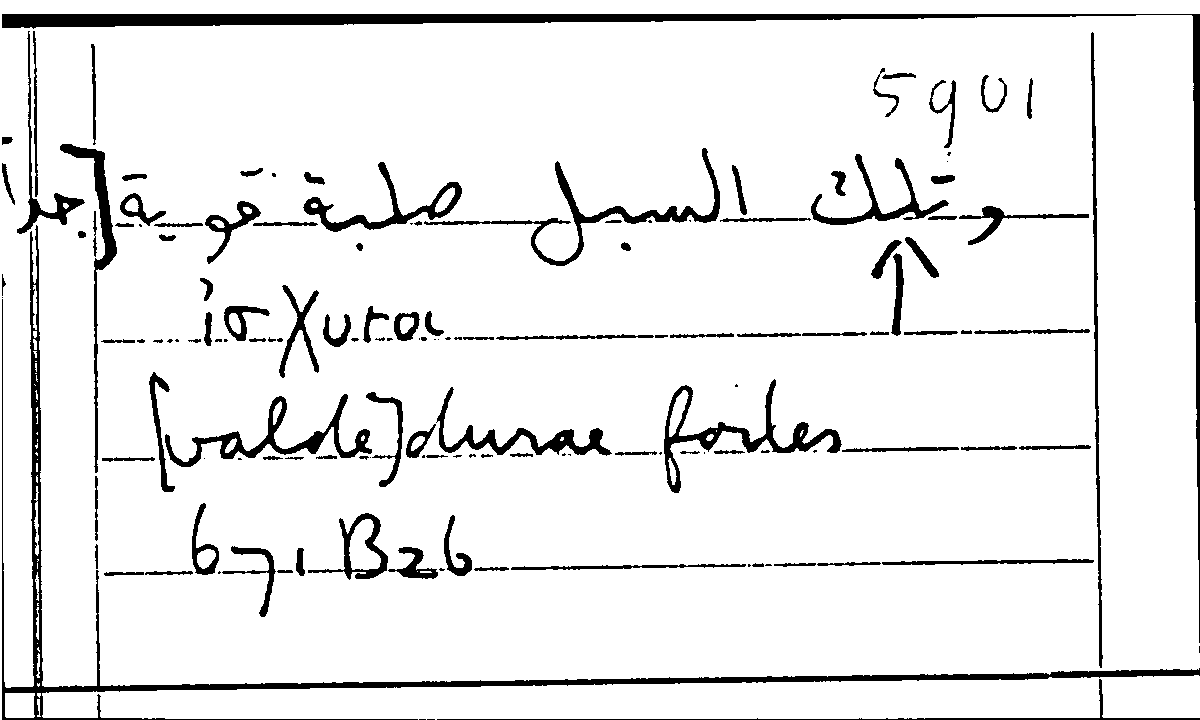 5901
وتلك السبل صلبة قوية [جدا
ἰσχυραι
[valde] durae fortes
671 B26